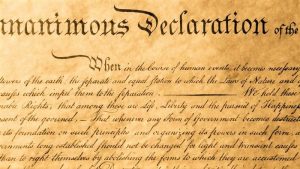 nnanimous Declaration of the
When in the Course of human events, it becomes necessary
owers of the earth, the separate and equal station to which the Laws of Nature and
auses which impel them to the separation. ——— We hold these
nable Rights, that among these are Life, Liberty and the pursuit of Happines
nsent of the governed, — That whenever any Form of Government becomes destructi
its foundation on such principles and organizing its powers in such form, a
ernments long established should not be changed for light and transient causes
than to right themselves by abolishing the forms to which they are accustomed